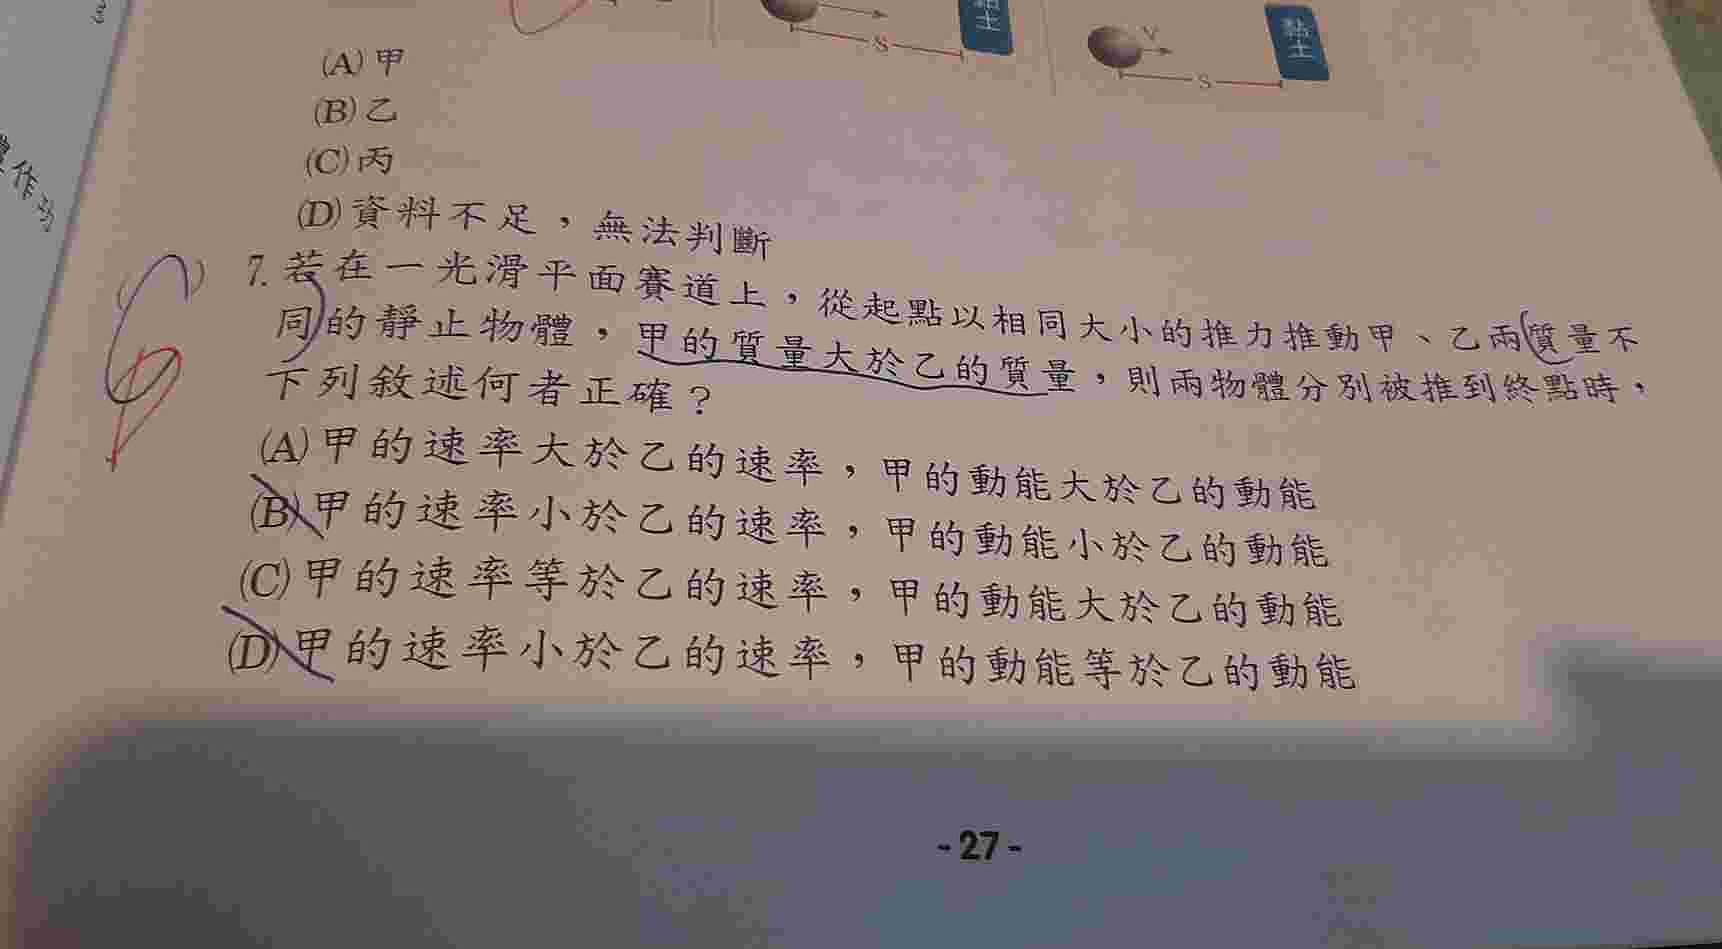 作功
黏土
S
V
黏土
S
(A)甲
(B)乙
(C)丙
(D)資料不足，無法判斷
7.若在一光滑平面賽道上，從起點以相同大小的推力推動甲、乙兩質量不
同的靜止物體，甲的質量大於乙的質量，則兩物體分別被推到終點時，
下列敘述何者正確？
(A)甲的速率大於乙的速率，甲的動能大於乙的動能
(B)甲的速率小於乙的速率，甲的動能小於乙的動能
(C)甲的速率等於乙的速率，甲的動能大於乙的動能
(D)甲的速率小於乙的速率，甲的動能等於乙的動能
-27-